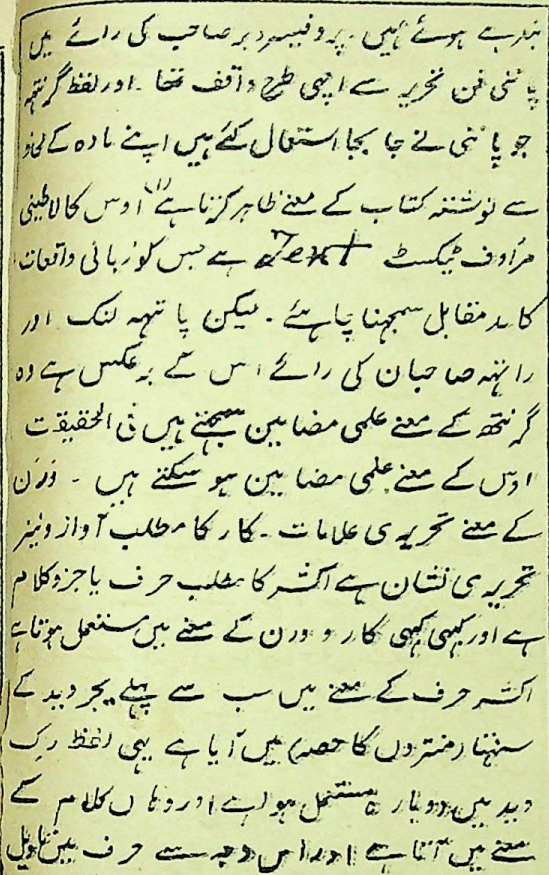 بندہے ہوئے ہیں۔ پروفیسر ویبر صاحب کی رائے میں
پاننی فن تحریر سے اچھی طرح واقف تھا۔ اور لفظ گرنتھ
جو پاننی نے جا بجا استعمال کئے ہیں اپنے مادہ کے لحاظ
سے نوشتہ کتاب کے معنے ظاہر کرتا ہے (۱) اوس کا لاطینی
مرادف ٹیکسٹ Text ہے جس کو زبانی واقعات
کا مد مقابل سمجھنا چاہئے۔ لیکن پاتہہ لنک اور
راتہہ صاحبان کی رائے اس کے برعکس ہے وہ
گرنتھ کے معنے علمی مضامین سمجھتے ہیں فی الحقیقت
اوس کے معنے علمی مضامین ہو سکتے ہیں ۔ ورن
کے معنے تحریری علامات ۔ کار کا مطلب آواز ونیز
تحریری نشان ہے اکشر کا مطلب حرف یا جزو کلام
ہے اور کبہی کبہی کار و ورن کے معنے میں مستعمل ہوتا ہے
اکشر حرف کے معنے میں سب سے پہلے یجر وید کے
سنہتا (منتروں کا حصہ) میں آیا ہے یہی لفظ رگ
وید میں دوبار مستعمل ہوا ہے اور وہاں کلام کے
معنے میں آتا ہے اور اس وجہ سے حرف میں تاویل